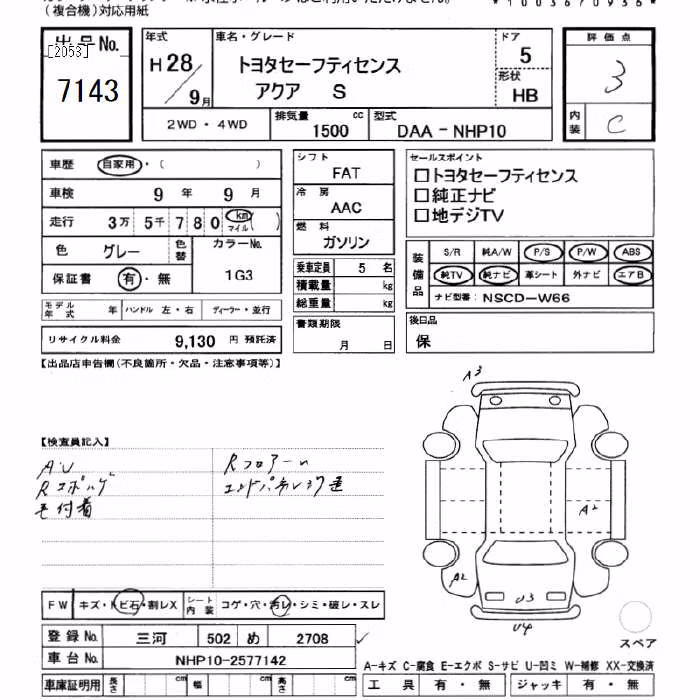 （複合機）対応用紙
*1003670936*
出品No.
[2053]
7143
年式
H28/9月
車名・グレード
トヨタセーフティセンス
アクア S
ドア
5
形状
HB
評価点
3
内装
C
2WD・4WD
排気量 1500 cc
型式 DAA-NHP10
車歴 自家用・（ ）
車検 9年 9月
走行 3万5千780 km マイル（ ）
色 グレー 色替
カラーNo. 1G3
保証書 有・無
モデル年式 年 ハンドル 左・右 ディーラー・並行
リサイクル料金 9,130 円 預託済
シフト
FAT
冷房
AAC
燃料
ガソリン
乗車定員 5 名
積載量 kg
総重量 kg
書類期限
月 日
セールスポイント
□トヨタセーフティセンス
□純正ナビ
□地デジTV
装備品
S/R 純A/W P/S P/W ABS
純TV 純ナビ 革シート 外ナビ エアB
ナビ型番： NSCD-W66
後日品
保
【出品店申告欄（不良箇所・欠品・注意事項等）】
【検査員記入】
AU
毛付着
Rフロアー
A3
A2
A2
U3
U4
FW キズ・トビ石・割レX
シート内装 コゲ・穴・汚レ・シミ・破レ・スレ
登録No. 三河 502 め 2708
車台No. NHP10-2577142
車庫証明用 長さ cm 幅 cm 高さ cm
スペア
A-キズ C-腐食 E-エクボ S-サビ U-凹ミ W-補修 XX-交換済
工具 有・無 ジャッキ 有・無